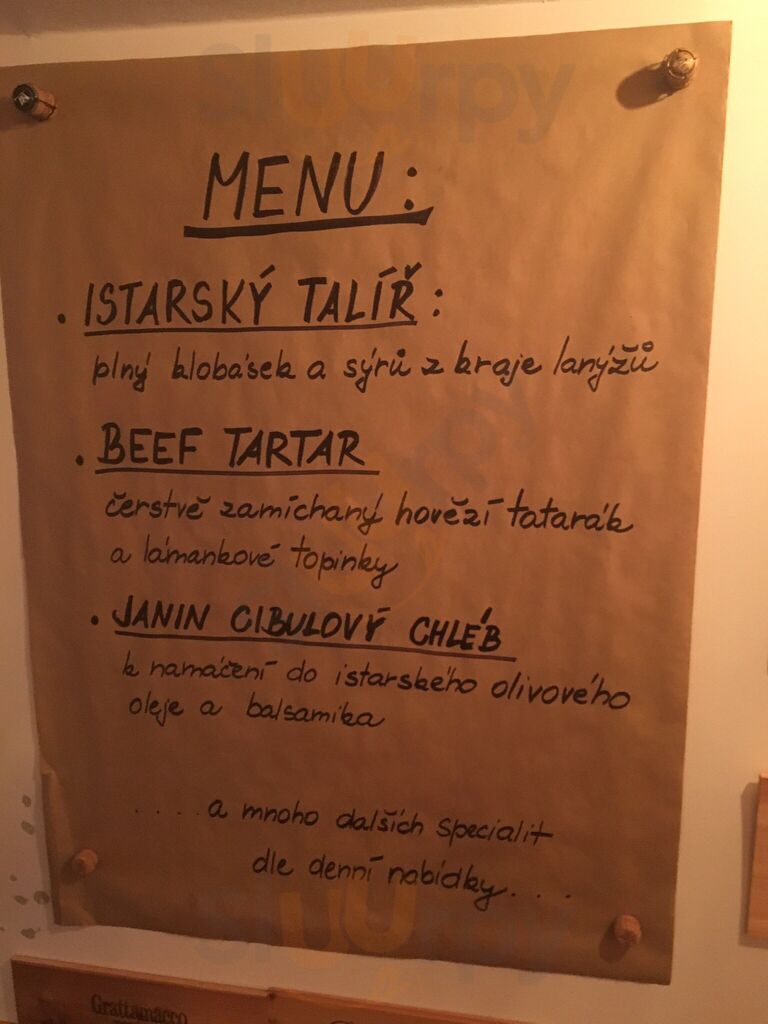 MENU:
• ISTARSKÝ TALÍŘ:
plný klobásek a sýrů z kraje lanýžů
• BEEF TARTAR
čerstvě zamíchaný hovězí tatarák
a lámankové topinky
• JANIN CIBULOVÝ CHLÉB
k namáčení do istarského olivového
oleje a balsamika
.... a mnoho dalších specialit
dle denní nabídky...
Grattamacco
sluurpy
sluurpy
sluurpy